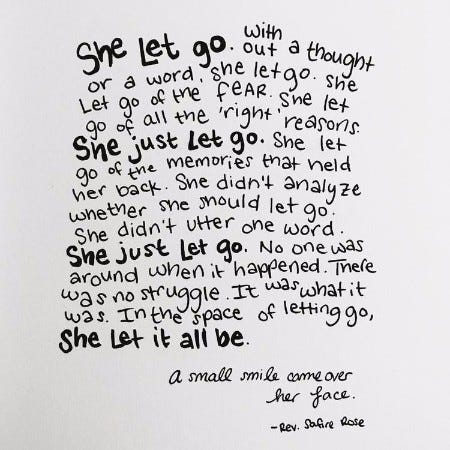 She Let go. with
out a thought
or a word, she let go. She
Let go of the FEAR. She let
go of all the 'right' reasons.
She just Let go. She let
go of the memories that held
her back. She didn't analyze
whether she should let go.
She didn't utter one word.
She just Let go. No one was
around when it happened. There
was no struggle. It was what it
was. In the space of letting go,
She Let it all be.
A small smile came over
her face.
-Rev. Safire Rose